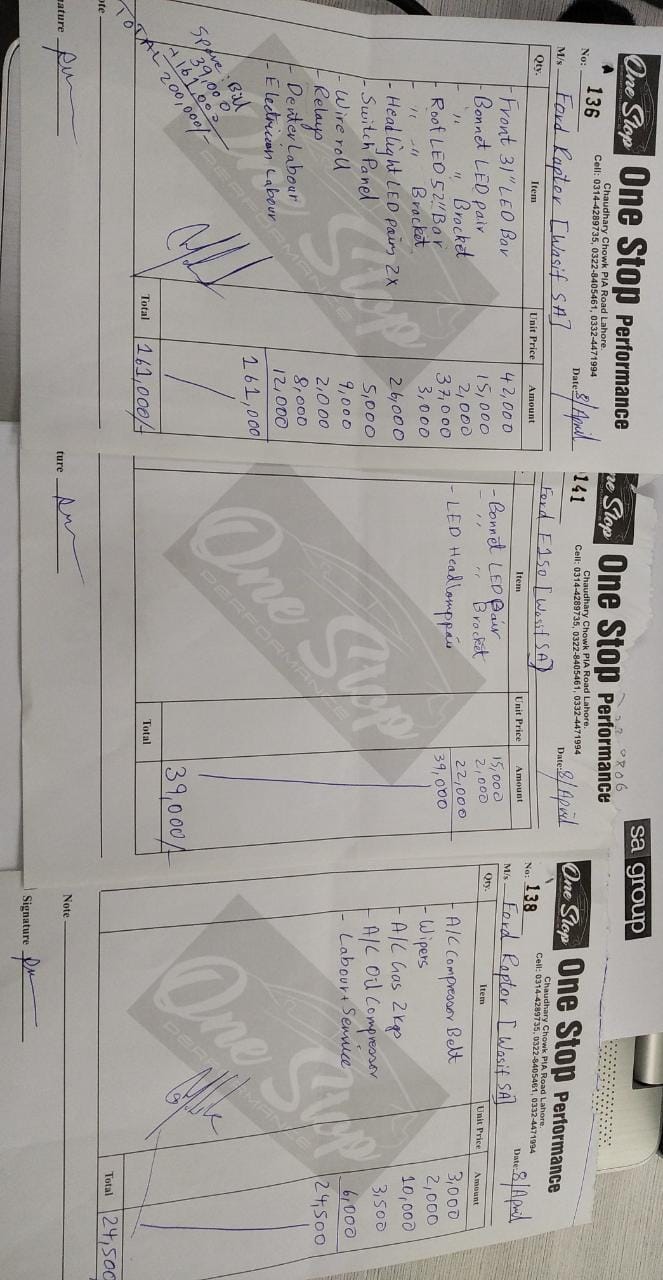 One Stop
One Stop Performance
Chaudhary Chowk PIA Road Lahore.
Cell: 0314-4289735, 0322-8405461, 0332-4471994
No: 136
Date: 8/April
M/s Ford Raptor [Wasif SA]
Qty. Item Unit Price Amount
- Front 31" LED Bar 42,000
- Bonnet LED pair 15,000
- " " Bracket 2,000
- Roof LED 52" Bar 37,000
- " " Bracket 3,000
- Headlight LED pairs 2x 26,000
- Switch Panel 5,000
- Wire roll 9,000
- Relays 2,000
- Denter Labour 8,000
- Electrician Labour 12,000
161,000
Spare: Bill
39,000
+161,000
TOTAL 200,000/-
Total 161,000/-
One Stop
PERFORMANCE
ote
nature
ne Stop
One Stop Performance
Chaudhary Chowk PIA Road Lahore.
Cell: 0314-4289735, 0322-8405461, 0332-4471994
141
Date: 8/April
Ford F150 [Wasif SA]
Item Unit Price Amount
- Bonnet LED Pair 15,000
- " " Bracket 2,000
- LED Headlamp pair 22,000
39,000
Total 39,000/-
One Stop
PERFORMANCE
ture
0806
sa group
One Stop
One Stop Performance
Chaudhary Chowk PIA Road Lahore.
Cell: 0314-4289735, 0322-8405461, 0332-4471994
No: 138
Date: 8/April
M/s Ford Raptor [Wasif SA]
Qty. Item Unit Price Amount
- A/C Compressor Belt 3,000
- Wipers 2,000
- A/C Gas 2 kgs 10,000
- A/C Oil Compressor 3,500
- Labour + Service 6,000
24,500
Total 24,500
One Stop
PERFORMANCE
Note
Signature